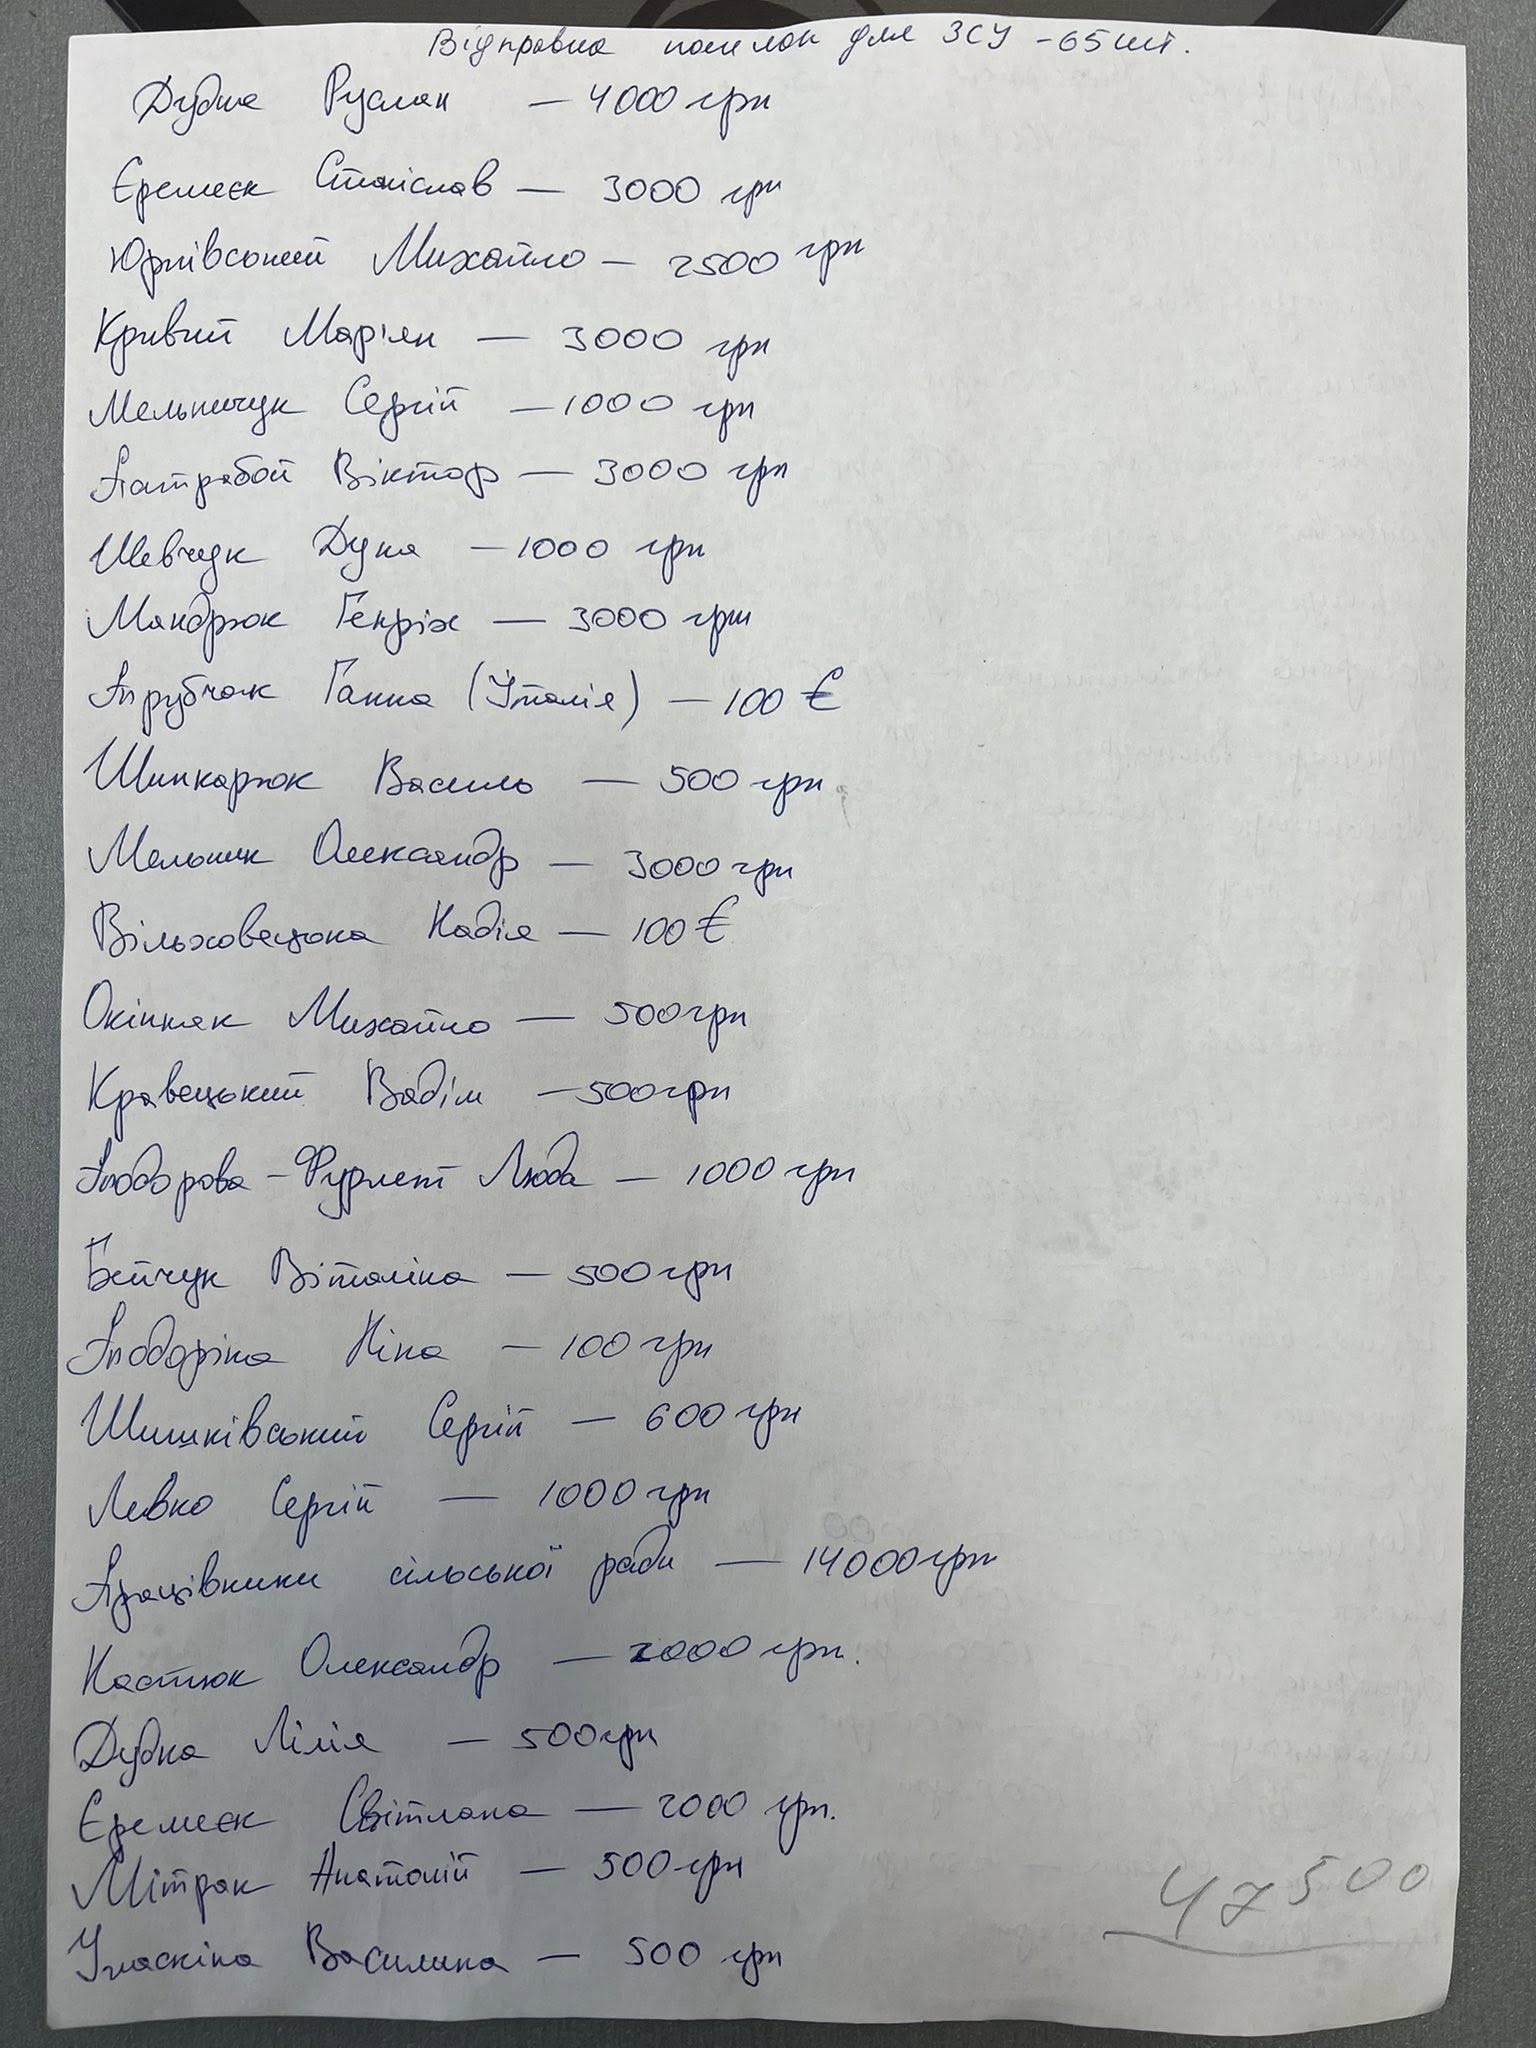 Відправка посилок для ЗСУ - 65 шт.
Дубка Руслан — 4000 грн
Єремеєк Станіслав — 3000 грн
Юрківський Михайло — 2500 грн
Кривий Мар'ян — 3000 грн
Мельничук Сергій — 1000 грн
Віктор — 3000 грн
Шевчук Дуня — 1000 грн
Мандрюк Генріх — 3000 грн
Ганна (Італія) — 100 €
Шинкарюк Василь — 500 грн
Мельник Олександр — 3000 грн
Вільховецька Надія — 100 €
Окіпняк Михайло — 500 грн
Кравецький Вадім — 500 грн
Люда — 1000 грн
Бейчук Віталіна — 500 грн
Ніна — 100 грн
Шишківський Сергій — 600 грн
Левко Сергій — 1000 грн
Працівники сільської ради — 14000 грн
Костюк Олександр — 2000 грн.
Дубка Лілія — 500 грн
Єремеєк Світлана — 2000 грн.
Мітрак Анатолій — 500 грн
Василина — 500 грн
47500